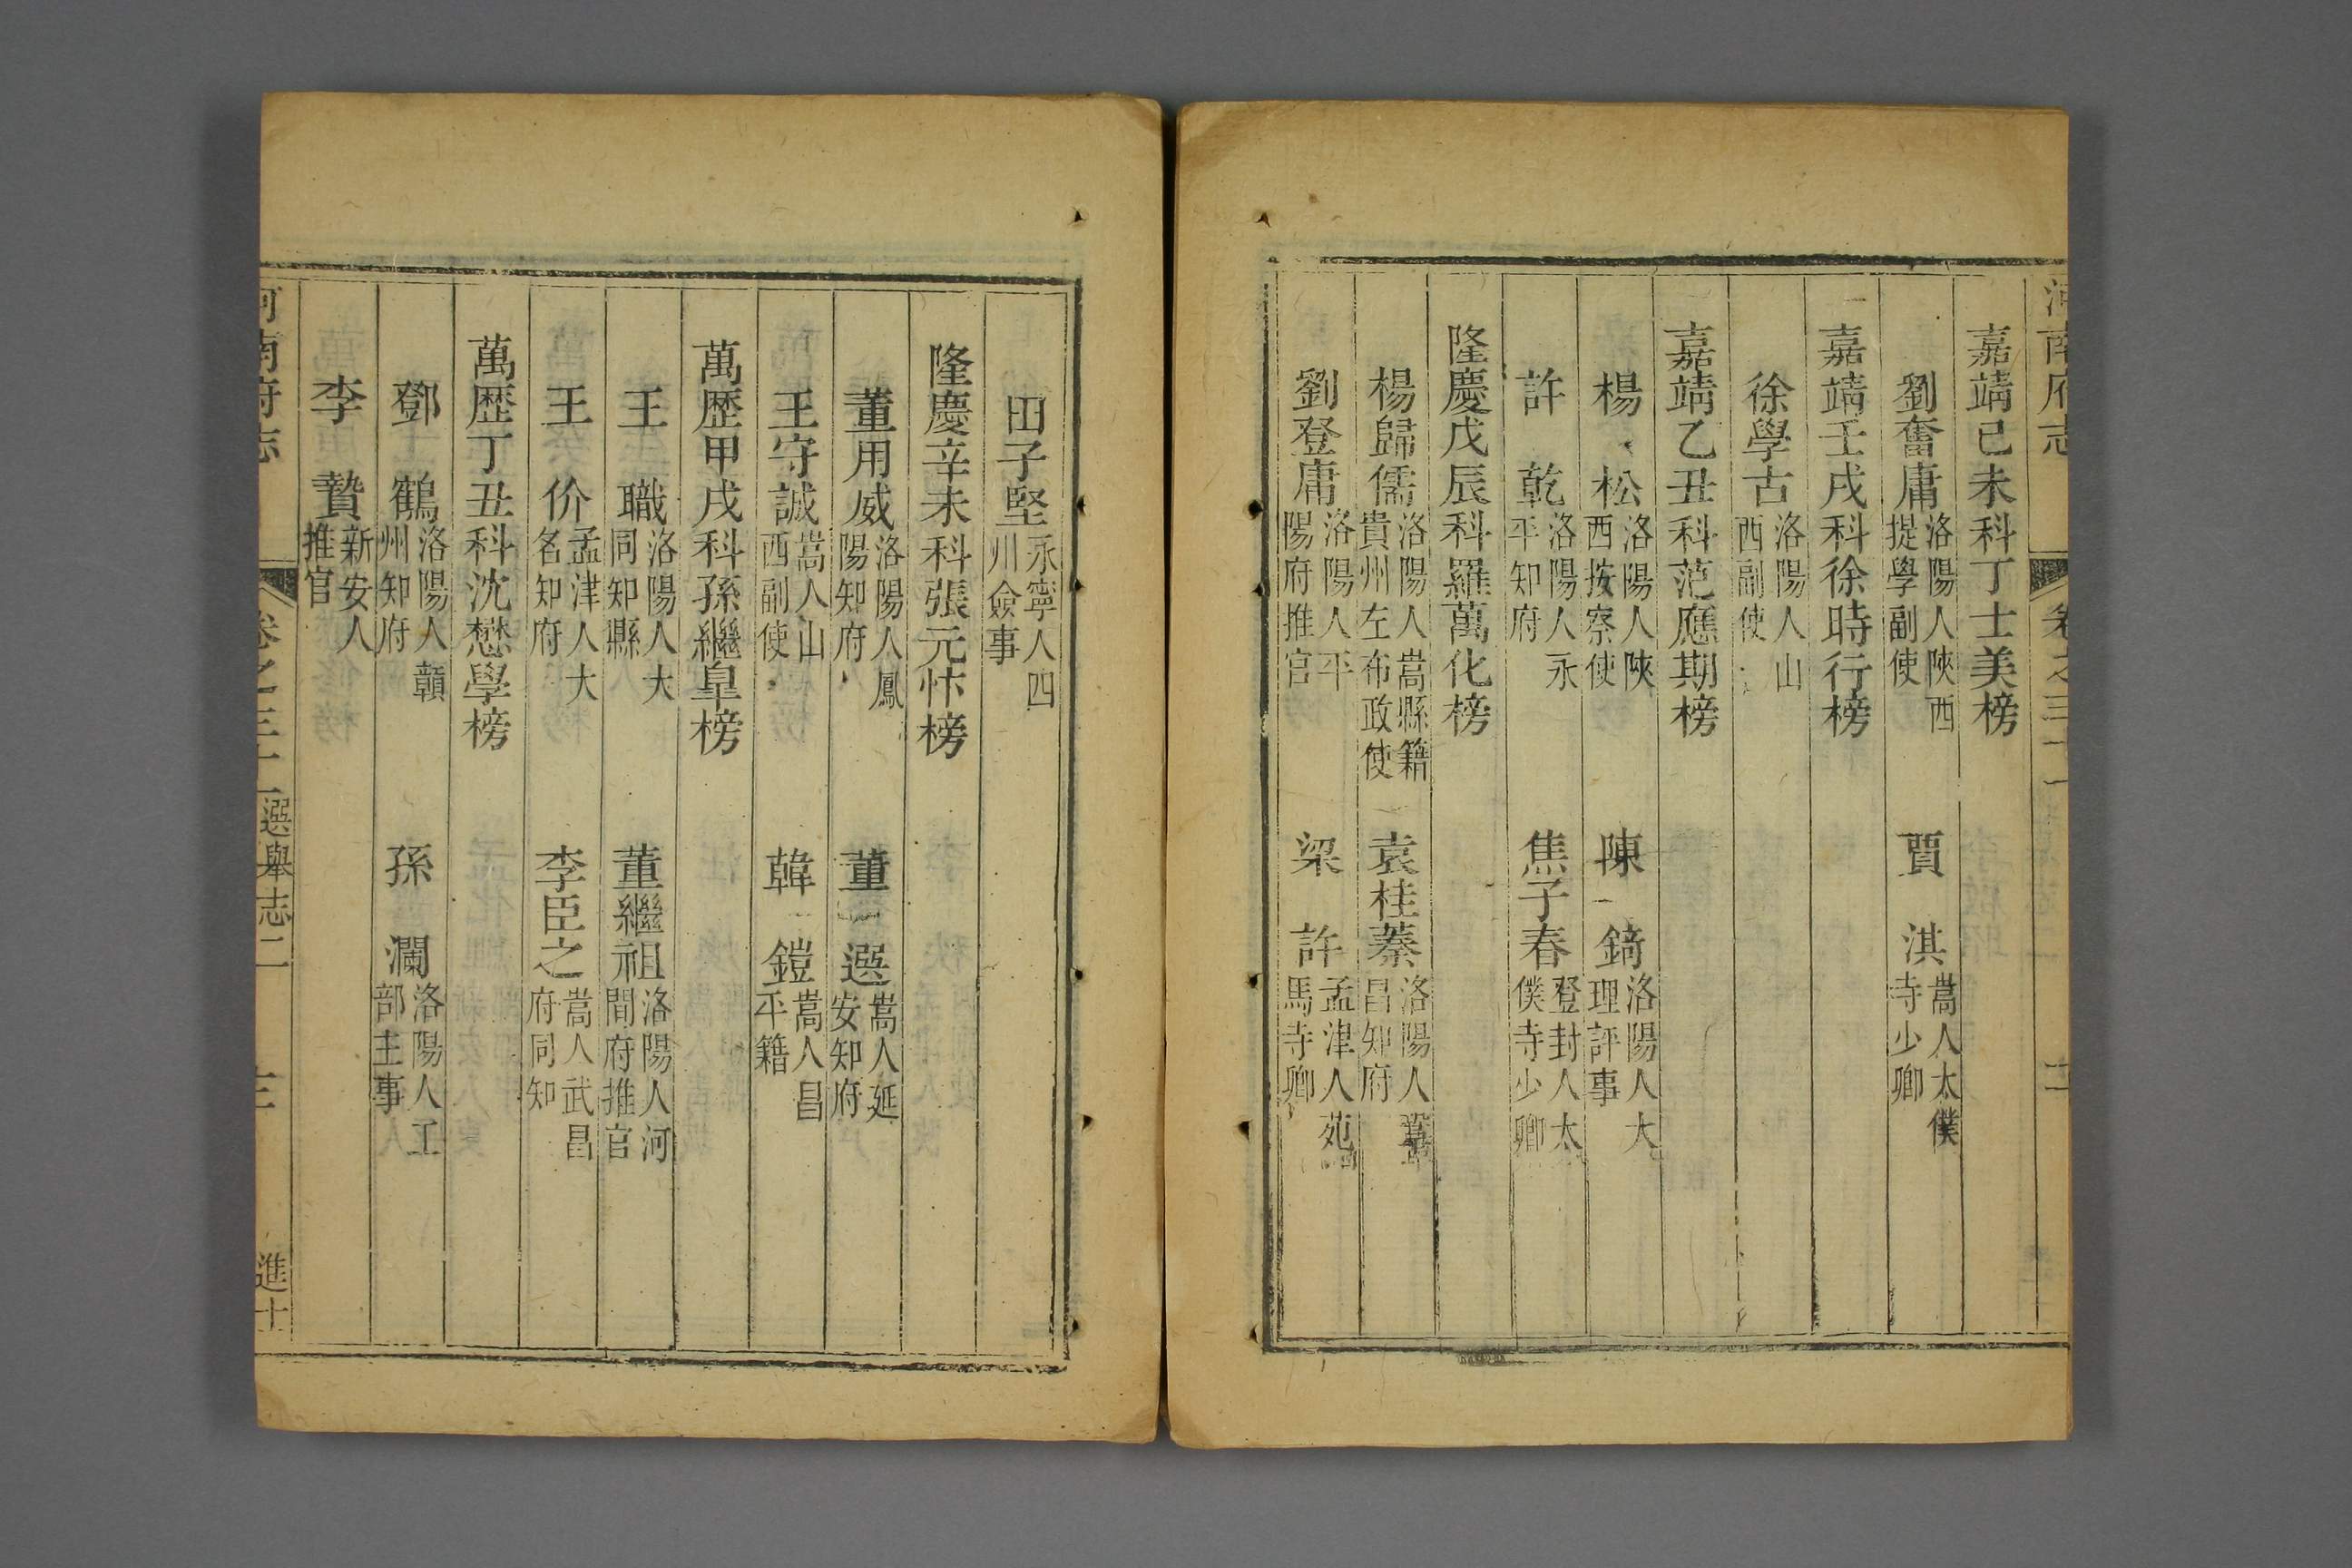 嘉靖己未科丁士美榜
劉奮庸洛陽人陝西提學副使 賈淇嵩人太僕寺少卿
嘉靖壬戌科徐時行榜
徐學古洛陽人山西副使
嘉靖乙丑科范應期榜
楊松洛陽人陝西按察使 陳錡洛陽人大理評事
許乾洛陽人永平知府 焦子春登封人太僕寺少卿
隆慶戊辰科羅萬化榜
楊歸儒洛陽人嵩縣籍貴州左布政使 袁桂蓁洛陽人鞏昌知府
劉登庸洛陽人平陽府推官 梁許孟津人苑馬寺卿
田子堅永寧人四川僉事
隆慶辛未科張元忭榜
董用威洛陽人鳳陽知府 董選嵩人延安知府
王守誠嵩人山西副使 韓鎧嵩人昌平籍
萬歷甲戌科孫繼皐榜
王職洛陽人大同知縣 董繼祖洛陽人河間府推官
王价孟津人大名知府 李臣之嵩人武昌府同知
萬歷丁丑科沈懋學榜
鄧鶴洛陽人贛州知府 孫瀾洛陽人工部主事
李贄新安人推官
河南府志 卷之三十二 選舉志二 三 進士